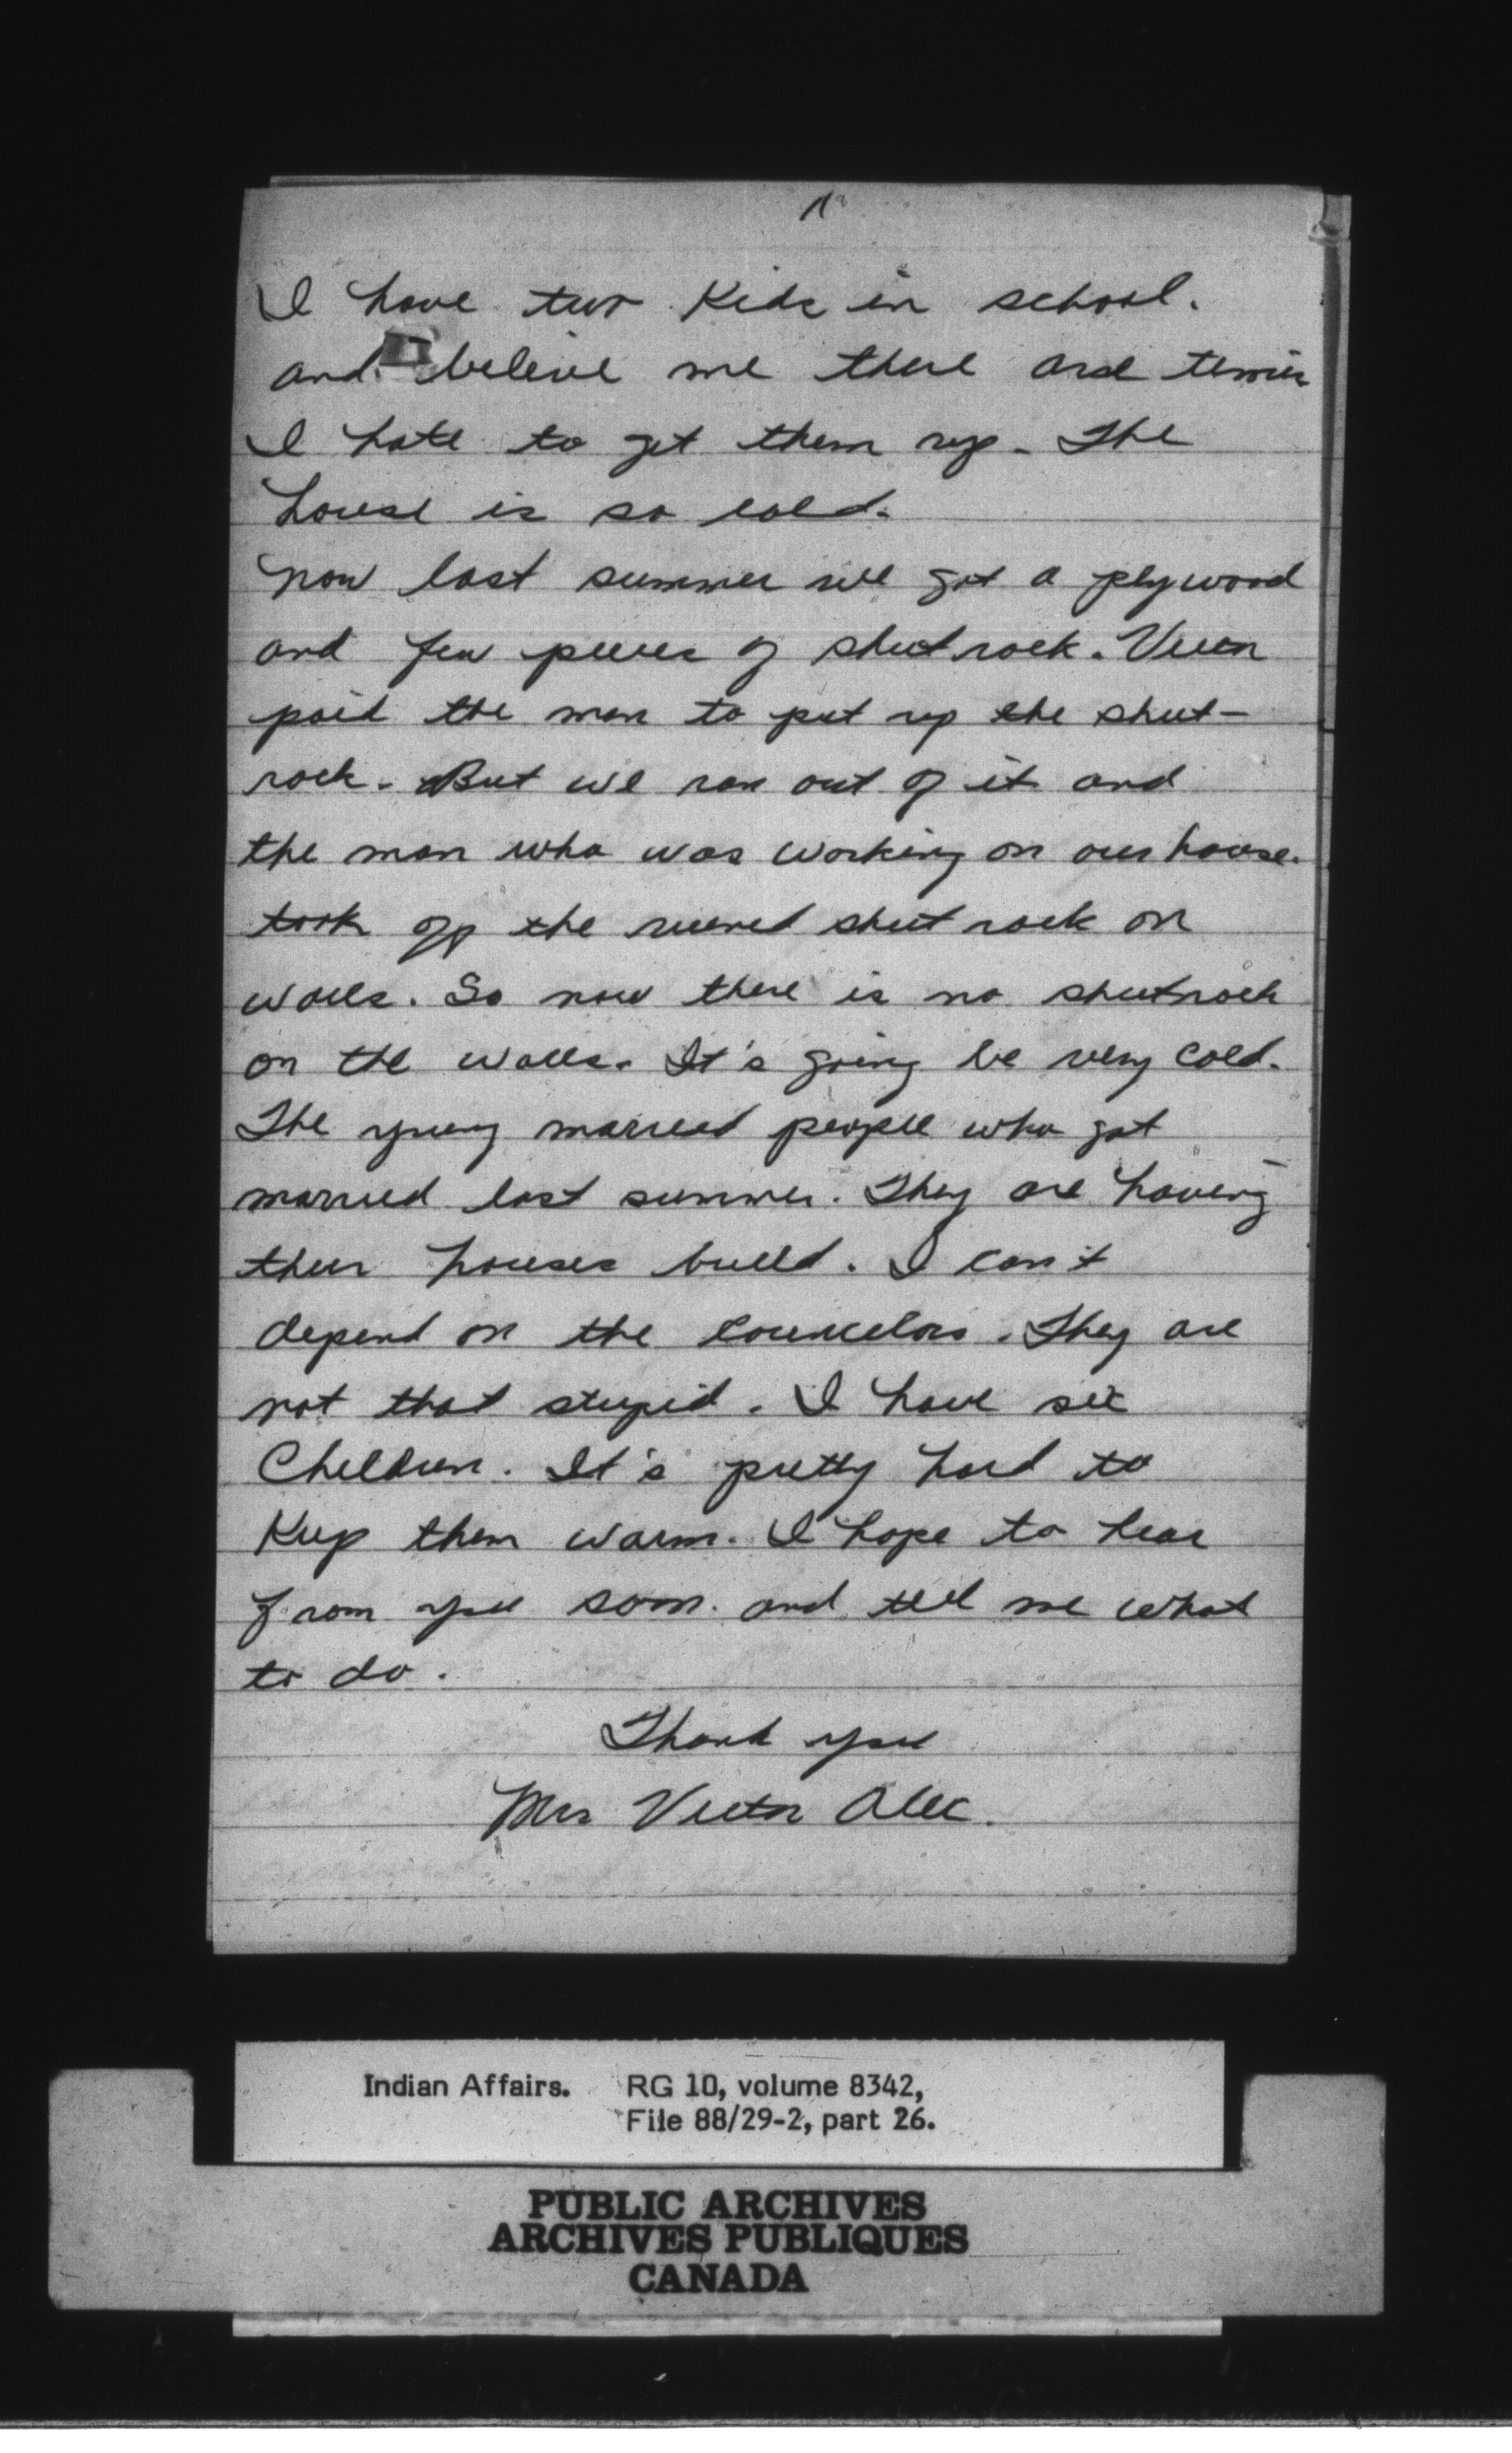 I have two Kids in school.
and beleive me there are times
I hate to get them up. The
house is so cold.
now last summer we got a plywood
and few pieces of sheetrock. Victor
paid the man to put up the sheet-
rock. But we ran out of it and
the man who was working on our house.
took off the ruined sheet rock on
walls. So now there is no sheetrock
on the walls. It's going be very cold.
The young married people who got
married last summer. They are having
their houses build. I can't
depend on the councelors. They are
not that stupid. I have six
Children. It's pretty hard to
Keep them warm. I hope to hear
from you soon. and tell me what
to do.
Thank you
Mrs Victor Alec.
Indian Affairs. RG 10, volume 8342,
File 88/29-2, part 26.
PUBLIC ARCHIVES
ARCHIVES PUBLIQUES
CANADA